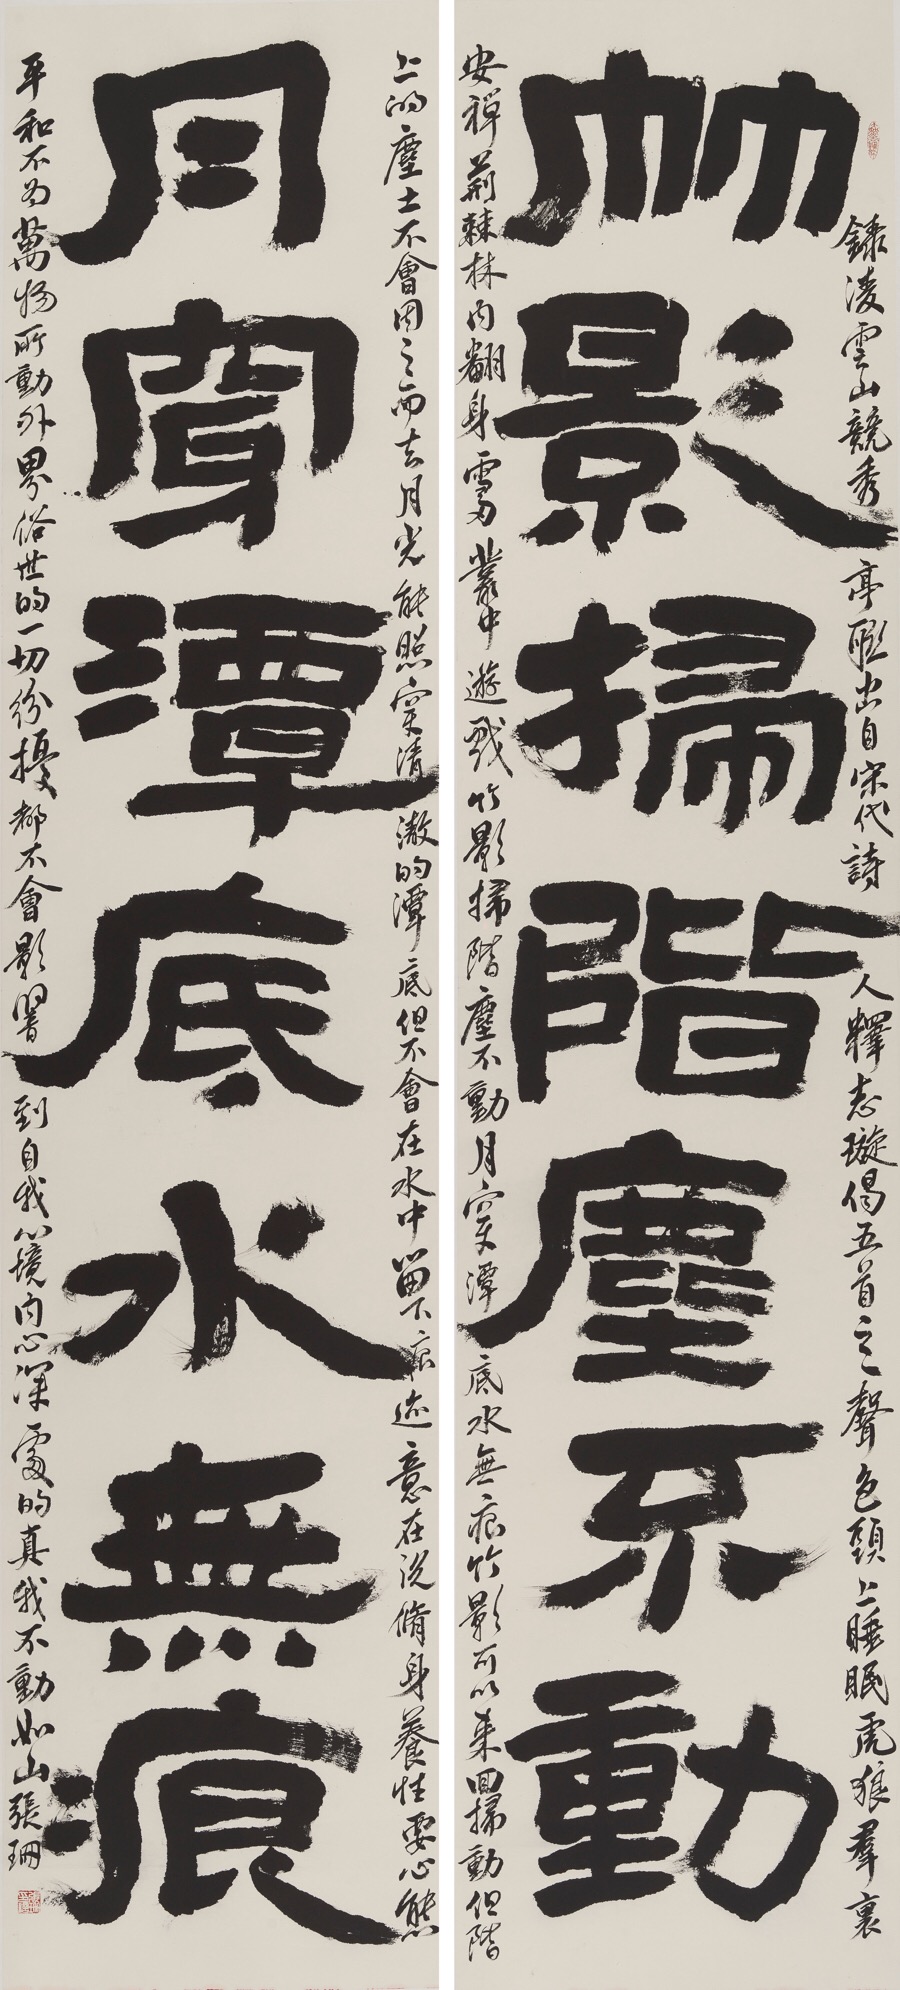 竹影掃階塵不動
月穿潭底水無痕
錄淩雲山競秀亭聯出自宋代詩人釋志璇偈五首之一聲色頭上睡眠虎狼羣裏
安禪荊棘林內翻身霅叢中遊戲竹影掃階塵不動月穿潭底水無痕竹影可以來回掃動但階
上的塵土不會因之而去月光能照穿清澈的潭底但不會在水中留下痕迹意在說脩身養性要心態
平和不為萬物所動外界俗世的一切紛擾都不會影響到自我心境內心深處的真我不動如山張珊